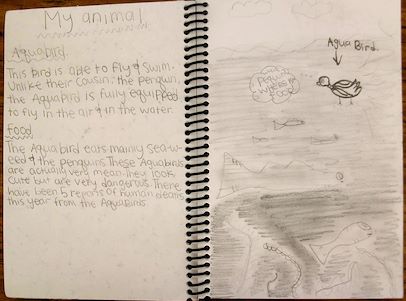 My animal
Aquabird.
This bird is able to fly & swim.
Unlike their cousin: the penquin,
the AquaBird is fully equipped
to fly in the air & in the water.
Food
The Aquabird eats mainly sea-w-
eed & the penguins. These Aquabirds
are actually very mean. They look
cute but are very dangerous. There
have been 5 reports of human deaths
this year from the AquaBirds.
Aqua Bird.
food